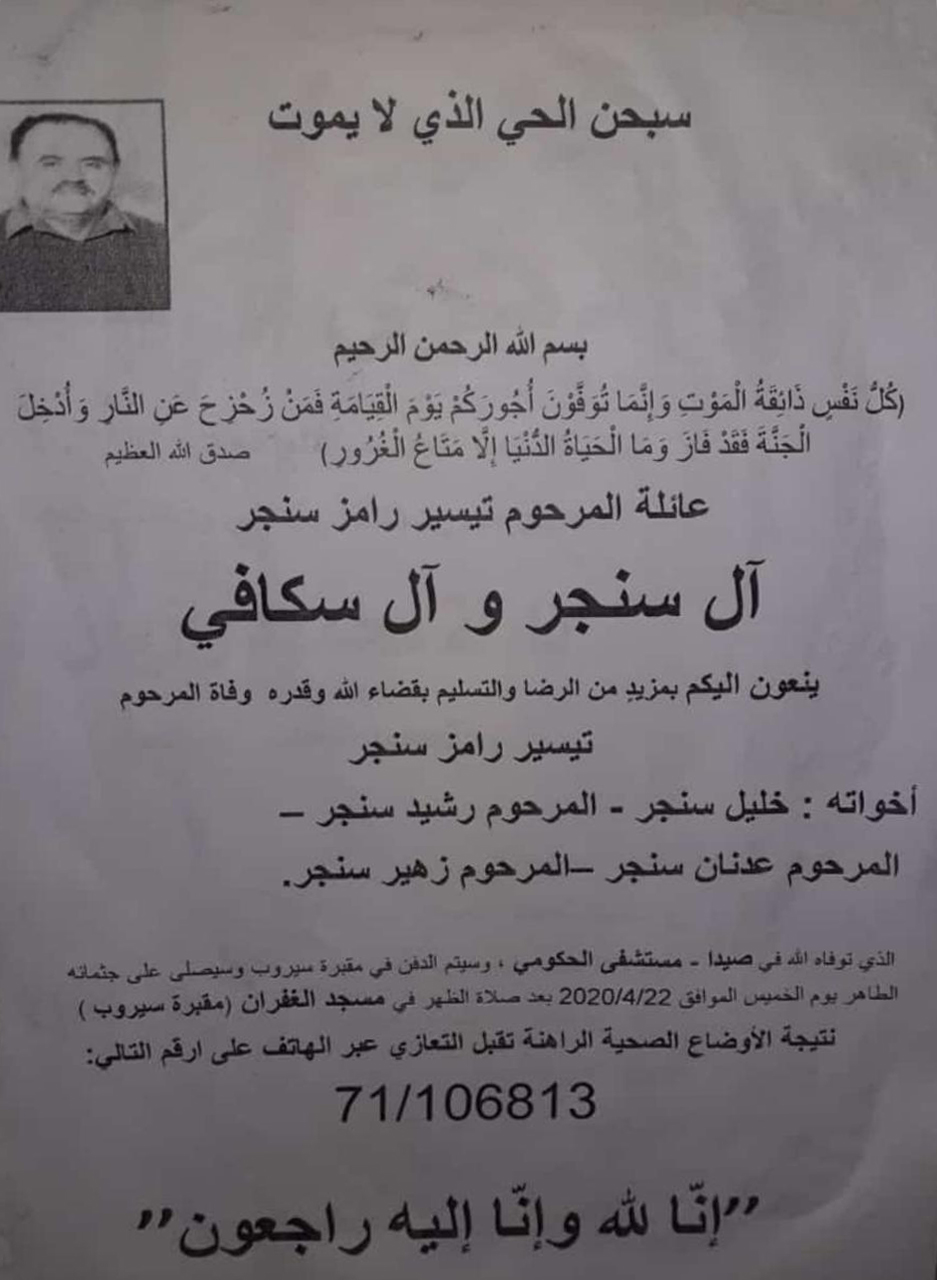 سبحن الحي الذي لا يموت
بسم الله الرحمن الرحيم
(كُلُّ نَفْسٍ ذَائِقَةُ الْمَوْتِ وَإِنَّمَا تُوَفَّوْنَ أُجُورَكُمْ يَوْمَ الْقِيَامَةِ فَمَنْ زُحْزِحَ عَنِ النَّارِ وَأُدْخِلَ
الْجَنَّةَ فَقَدْ فَازَ وَمَا الْحَيَاةُ الدُّنْيَا إِلَّا مَتَاعُ الْغُرُورِ) صدق الله العظيم
عائلة المرحوم تيسير رامز سنجر
آل سنجر و آل سكافي
ينعون اليكم بمزيدٍ من الرضا والتسليم بقضاء الله وقدره وفاة المرحوم
تيسير رامز سنجر
أخواته : خليل سنجر - المرحوم رشيد سنجر –
المرحوم عدنان سنجر –المرحوم زهير سنجر.
الذي توفاه الله في صيدا - مستشفى الحكومي ، وسيتم الدفن في مقبرة سيروب وسيصلى على جثمانه
الطاهر يوم الخميس الموافق 2020/4/22 بعد صلاة الظهر في مسجد الغفران (مقبرة سيروب )
نتيجة الأوضاع الصحية الراهنة تقبل التعازي عبر الهاتف على ارقم التالي:
71/106813
”إنّا لله وإنّا إليه راجعون”